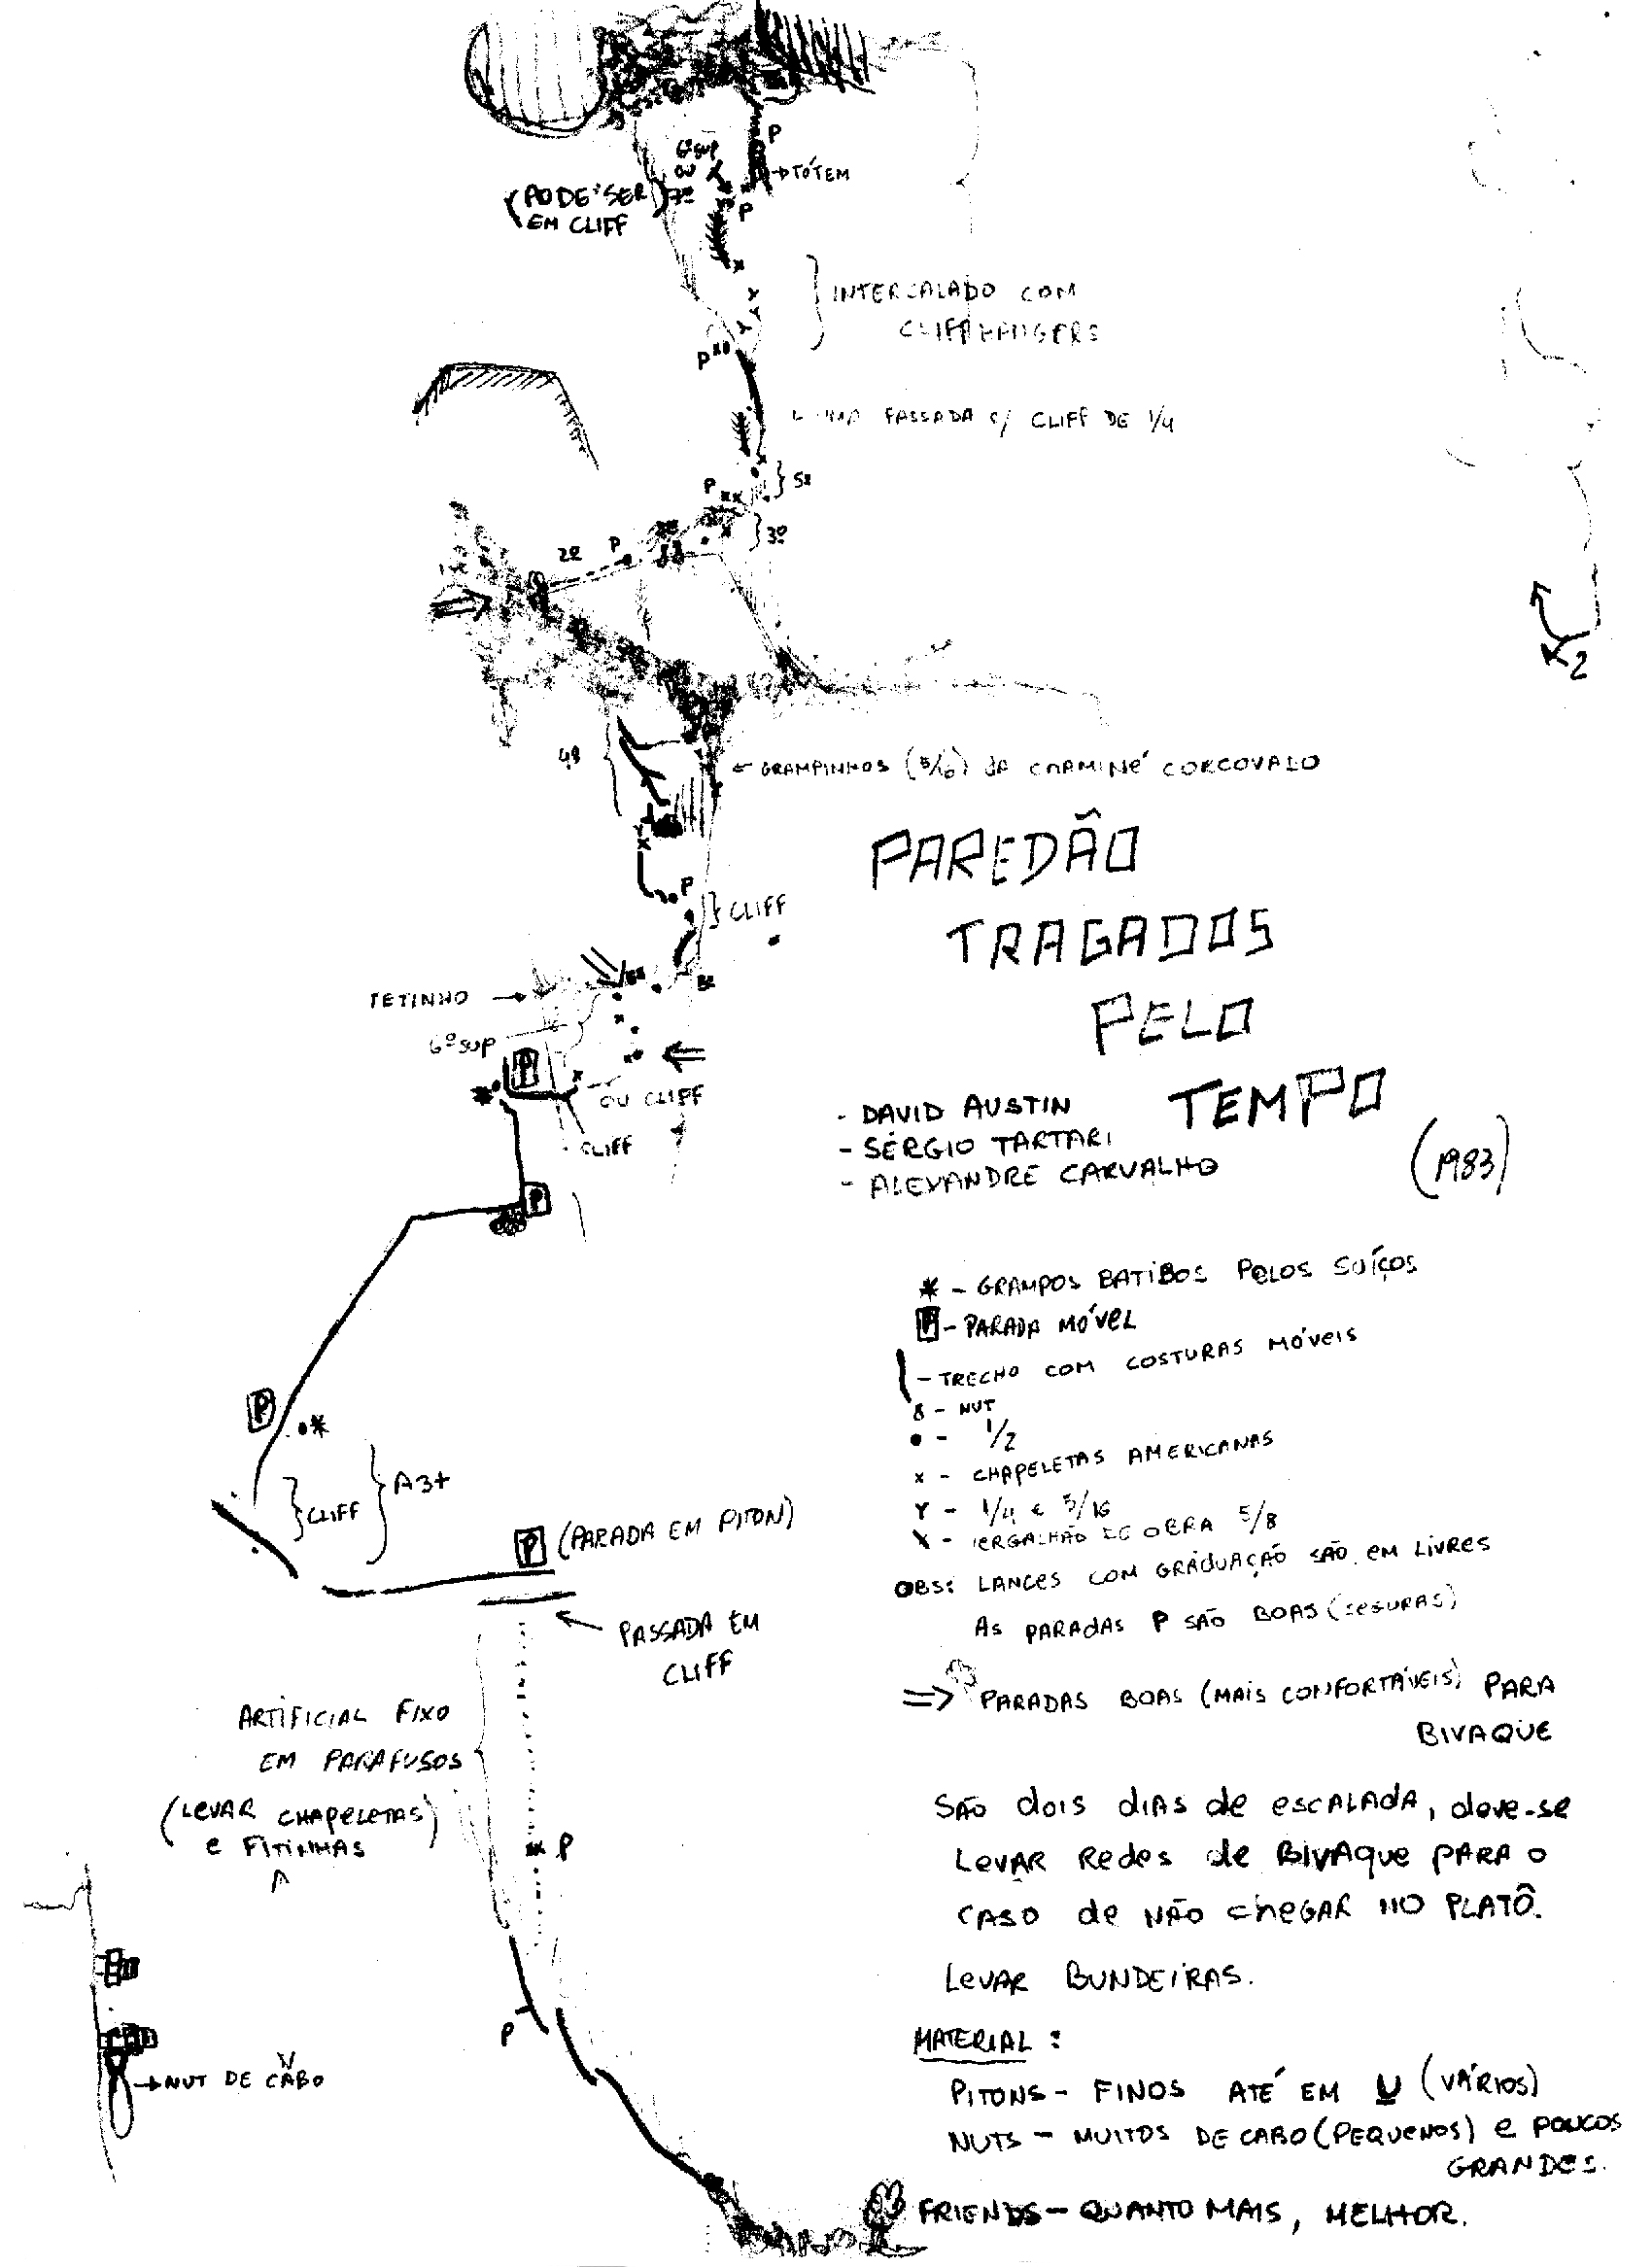 P
6º SUP
OU
7º
→ TÓTEM
(PODE SER
EM CLIFF)
P
INTERCALADO COM
CLIFFHANGERS
P
UMA PASSADA C/ CLIFF DE 1/4
5º
P
3º
2º
P
2
4º
← GRAMPINHOS (5/16) DA CHAMINÉ CORCOVADO
PAREDÃO
TRAGADOS
PELO
TEMPO
(1983)
P
CLIFF
TETINHO →
6º SUP
P
OU CLIFF
CLIFF
- DAVID AUSTIN
- SÉRGIO TARTARI
- ALEXANDRE CARVALHO
P
* - GRAMPOS BATIDOS PELOS SUÍÇOS
P - PARADA MÓVEL
- TRECHO COM COSTURAS MÓVEIS
8 - NUT
• - 1/2
x - CHAPELETAS AMERICANAS
Y - 1/4 E 5/16
X - VERGALHÃO DE OBRA 5/8
OBS: LANCES COM GRADUAÇÃO SÃO EM LIVRES
AS PARADAS P SÃO BOAS (SEGURAS)
⇒ PARADAS BOAS (MAIS CONFORTÁVEIS) PARA
BIVAQUE
P
CLIFF
A3+
P (PARADA EM PITON)
PASSADA EM
CLIFF
ARTIFICIAL FIXO
EM PARAFUSOS
(LEVAR CHAPELETAS
E FITINHAS)
P
P
→ NUT DE CABO
SÃO DOIS DIAS DE ESCALADA, DEVE-SE
LEVAR REDES DE BIVAQUE PARA O
CASO DE NÃO CHEGAR NO PLATÔ.
LEVAR BUNDEIRAS.
MATERIAL:
PITONS - FINOS ATÉ EM U (VÁRIOS)
NUTS - MUITOS DE CABO (PEQUENOS) E POUCOS
GRANDES.
FRIENDS - QUANTO MAIS, MELHOR.